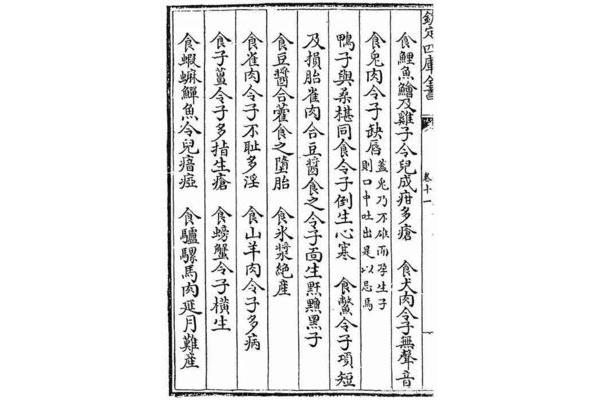 欽定四庫全書
卷十一
食鯉魚鱠及雞子令兒成疳多瘡　食犬肉令子無聲音
食兔肉令子缺唇 蓋兔乃不雄而孕生子
則口中吐出是以忌焉
鴨子與桑椹同食令子倒生心寒　食鱉令子項短
及損胎雀肉合豆醬食之令子面生䵟䵳黑子
食豆醬合藿食之墮胎　食氷漿絶産
食雀肉令子不耻多淫　食山羊肉令子多病
食子薑令子多指生瘡　食螃蟹令子橫生
食蝦蟆鱓魚令兒瘖瘂　食驢騾馬肉延月難産